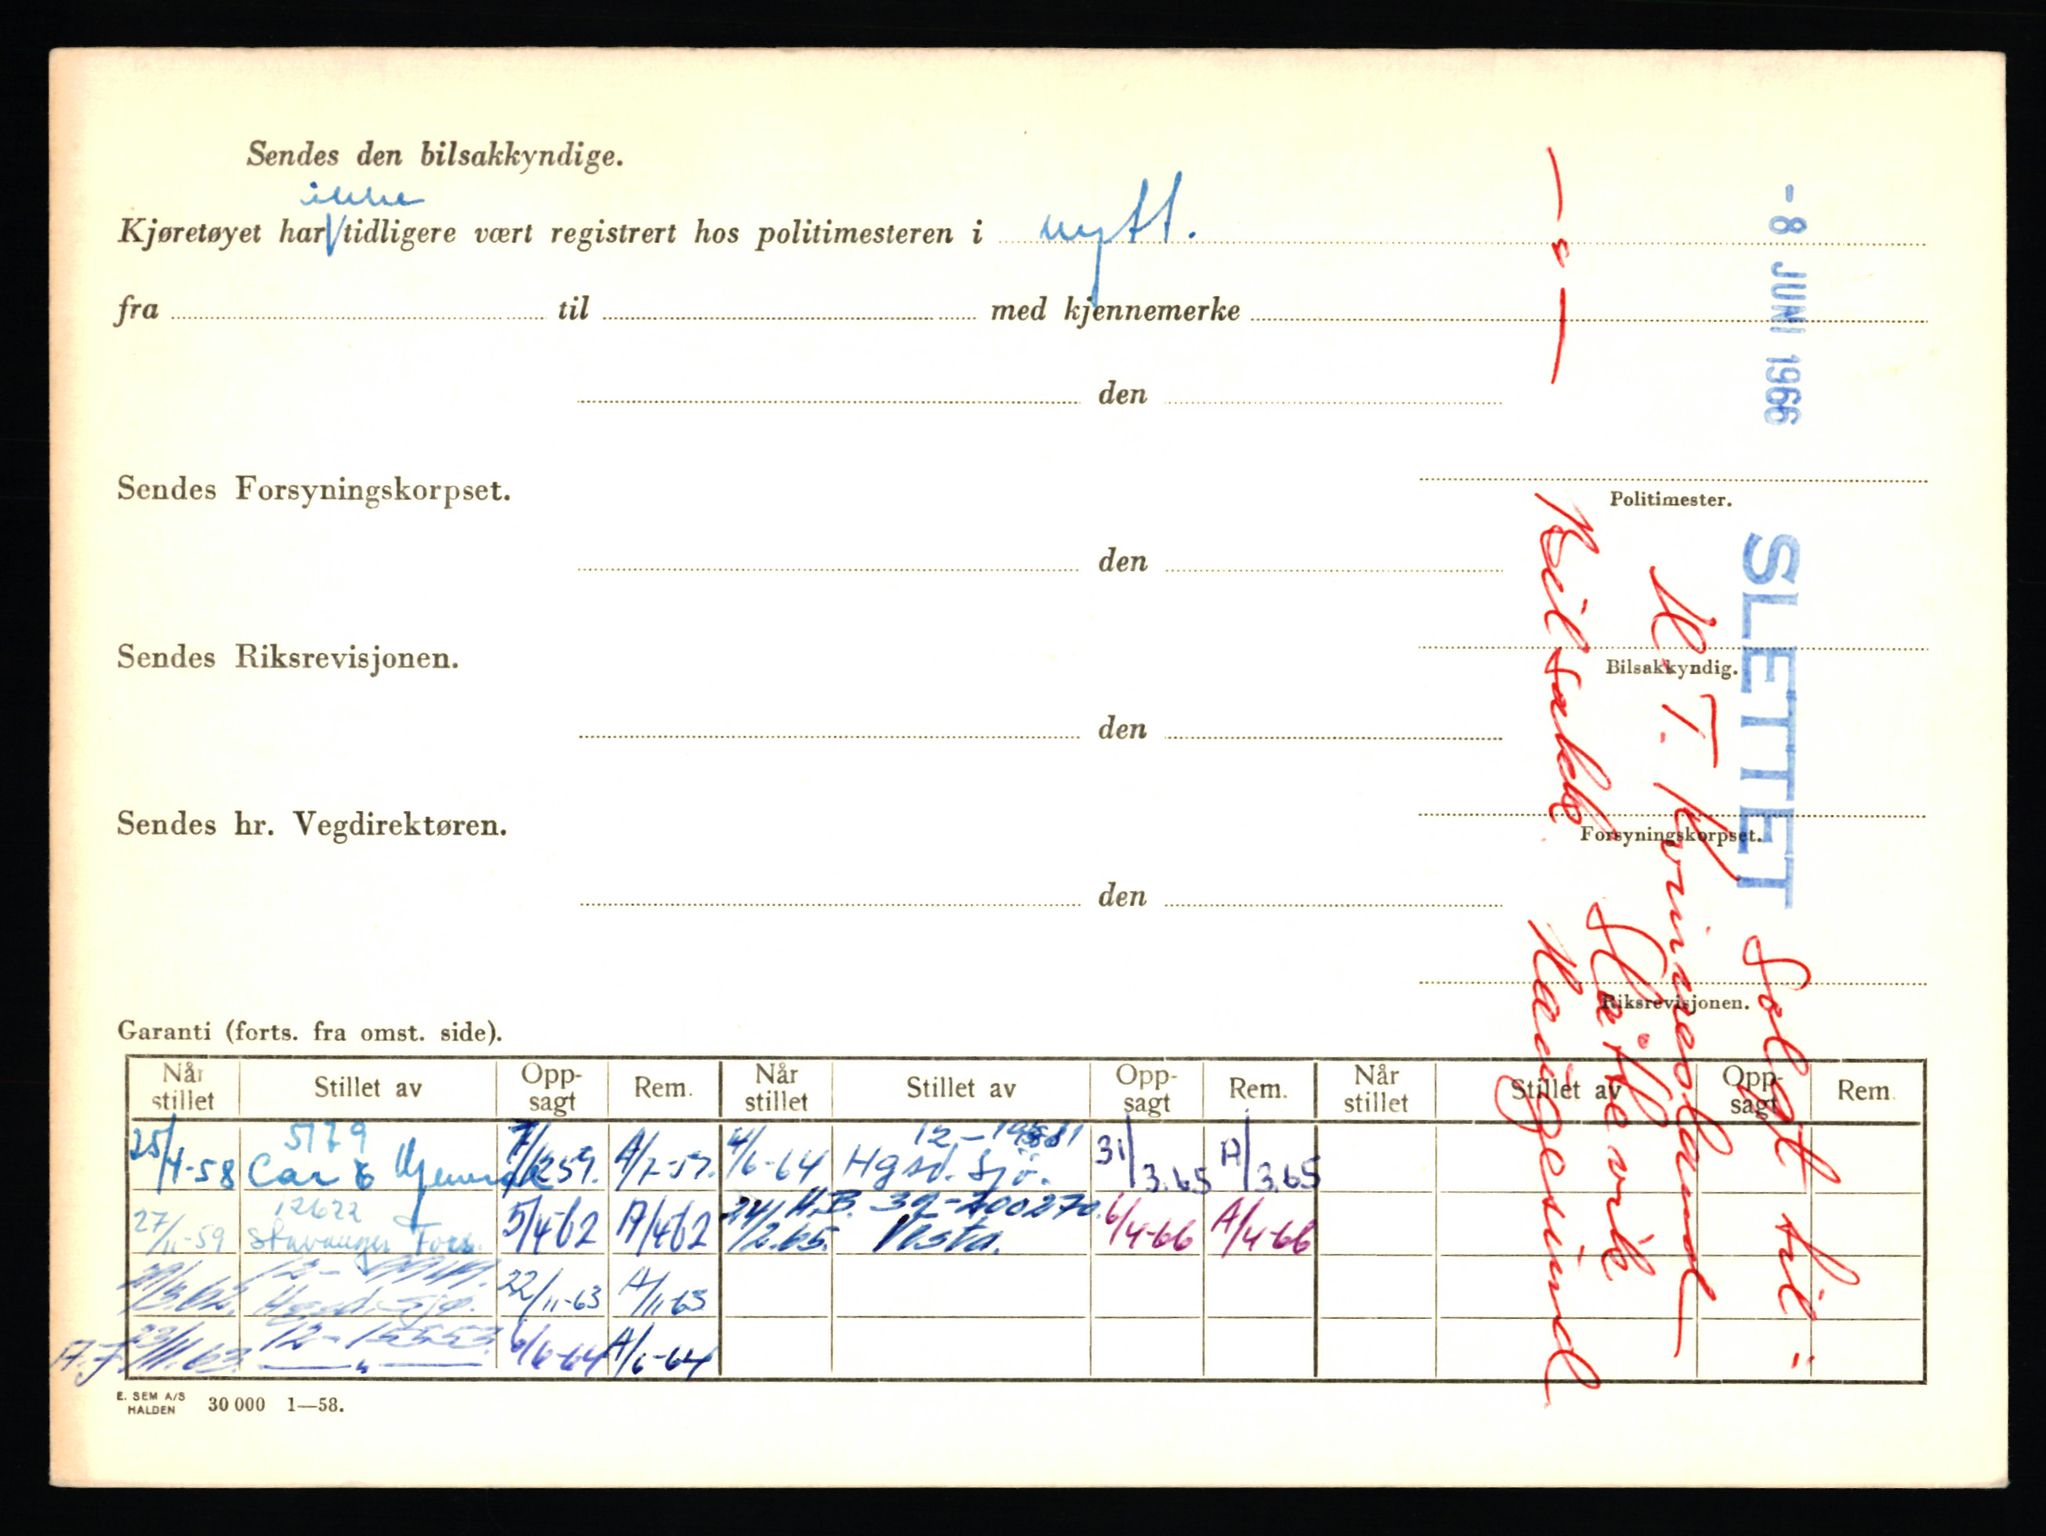 Sendes den bilsakkyndige.
ikke
Kjøretøyet har √ tidligere vært registrert hos politimesteren i nytt.
fra til med kjennemerke
den
Politimester.
Sendes Forsyningskorpset.
den
Bilsakkyndig.
Sendes Riksrevisjonen.
den
Forsyningskorpset.
Sendes hr. Vegdirektøren.
den
Riksrevisjonen.
- 8 JUNI 1966
SLETTET
Solgt til
T. Kvinnesland
Skåkevik
Haugesund
Garanti (forts. fra omst. side).
Når stillet Stillet av Opp-sagt Rem. Når stillet Stillet av Opp-sagt Rem. Når stillet Stillet av Opp-sagt Rem.
25/4-58 5179 Car & 4/6-64 Hgsd. Sjø. 31/3.65 A/3.65
27/11-59 12622 Stavanger Fors. 5/4-62 A/4-62 24/2.65. Vesta. 6/4-66 A/4-66
Hgsd. Sjø. 22/11-63 A/11-63
A.F. 12-15553. — „ — 6/6-64 A/6-64
E. SEM A/S
HALDEN 30 000 1—58.